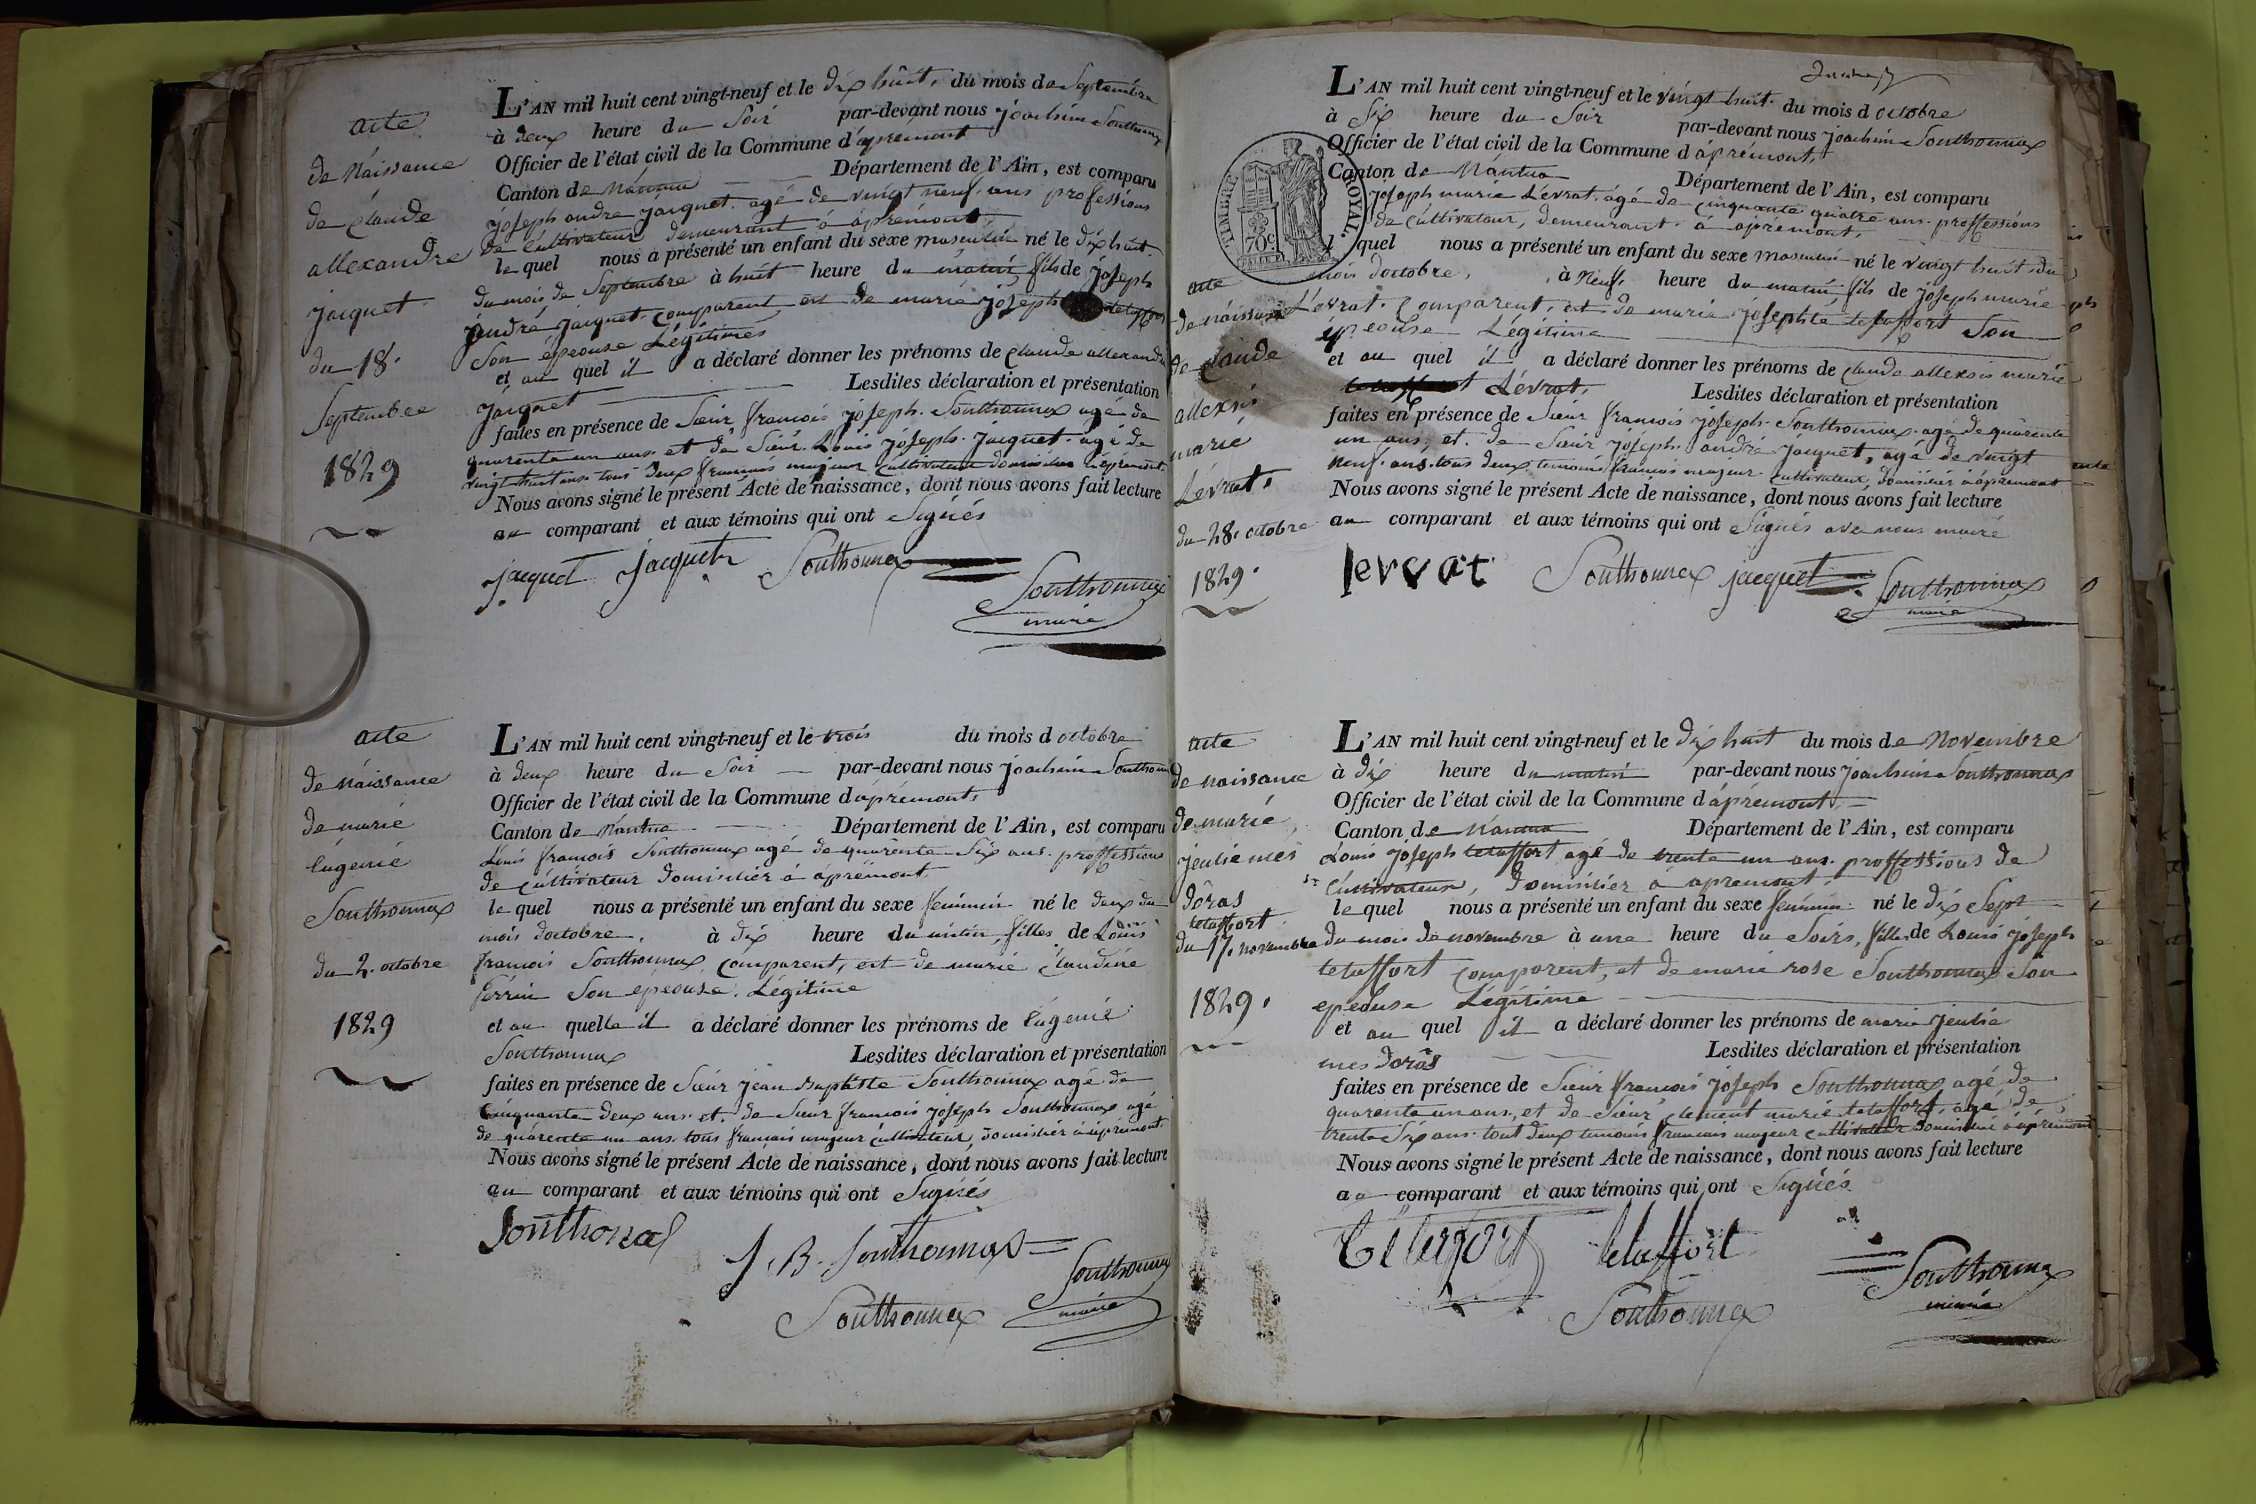 acte
de Náissance
de Claude
allexandre
jacquet
du 18.
Septembre
1829
L'AN mil huit cent vingt-neuf et le dix huit. du mois de Septembre
à deux heure du Soir par-devant nous joachim Southonnax
Officier de l'état civil de la Commune d'áprémont
Canton de Nántua Département de l'Ain, est comparu
joseph andré jácquet. agé de vingt neuf. ans professions
de Cultivateur demeurant á ápremont.
le quel nous a présenté un enfant du sexe masculin né le dix huit.
du mois de Septembre à huit heure du matin, fils de joseph
andré jácquet. comparent et de marie joseph
Son épeouse Légitimes
et au quel il a déclaré donner les prénoms de Claude allexandre
jácquet Lesdites déclaration et présentation
faites en présence de Sieur francois joseph. Southonnax agé de
quarente un ans. et de Sieur. Louis joseph. jacquet. agé de
vingt huit ans. tous deux francais majeur Cultivateur domicilier á áprémont
Nous avons signé le présent Acte de naissance, dont nous avons fait lecture
au comparant et aux témoins qui ont Signés
jacquet jacquet Southonnax
Southonnax
maire
acte
de Náissance
de marie
Eugenie
Southonnax
du 2. octobre
1829
L'AN mil huit cent vingt-neuf et le trois du mois d octobre
à deux heure du Soir par-devant nous joachim Southonnax
Officier de l'état civil de la Commune d'áprémont,
Canton de Nántua Département de l'Ain, est comparu
Louis francois Southonnax agé de quarente Six ans. proffessions
de Cultivateur domicilier á áprémont
le quel nous a présenté un enfant du sexe feminin né le deux du
mois doctobre, à dix heure du matin, filles de Louis
francois Southonnax comparent, et de marie Claudine
perrin Son épeouse. Légitime
et au quelle il a déclaré donner les prénoms de Eugenie
Southonnax Lesdites déclaration et présentation
faites en présence de Sieur jean Baptiste Southonnax agé de
Cinquante deux ans. et. de Sieur francois joseph Southonnax agé
de quárente un ans. tous francais majeur Cultivateur, domicilier á áprémont
Nous avons signé le présent Acte de naissance, dont nous avons fait lecture
au comparant et aux témoins qui ont Signés
Southonax
J. B. Southonnax
Southonnax
Southonnax
maire
TIMBRE ROYAL.
70 c
acte
de náissance
de Claude
allexis
marie
Levrat.
du 28. octobre
1829.
L'AN mil huit cent vingt-neuf et le vingt huit. du mois d octobre
à Six heure du Soir par-devant nous joachim Southonnax
Officier de l'état civil de la Commune d áprémont,
Canton de Nántua Département de l'Ain, est comparu
joseph marie Levrat. ágé de cinquante quatre ans. proffessions
de Cultivateur, demeurant. á ápremont.
l quel nous a présenté un enfant du sexe masculin né le vingt huit du
mois doctobre, à Neuf. heure du matin, fils de joseph marie
Levrat. Comparent, et de marie josephte tetaffort Son
epeouse Légitime
et au quel il a déclaré donner les prénoms de Claude allexis marie
Lévrat. Lesdites déclaration et présentation
faites en présence de Sieur francois joseph. Southonnax agé de quárente
un ans, et. de Sieur joseph. andré jácquet, agé de vingt
neuf. ans. tous deux temoins francais majeur Cultivateur, domicilier á áprémont
Nous avons signé le présent Acte de naissance, dont nous avons fait lecture
au comparant et aux témoins qui ont Signés avec nous maire
levrat Southonnax jacquet Southonnax
maire
acte
de naissance
de marie,
jeulie mes
dôras
tetaffort.
du 17. novembre
1829.
L'AN mil huit cent vingt-neuf et le dix huit du mois de Novembre
à dix heure du matin par-devant nous joachim Southonnax
Officier de l'état civil de la Commune d áprémont,
Canton de Nántua Département de l'Ain, est comparu
Louis joseph tetaffort agé de trente un ans. proffessions de
Cultivateur, domicilier á ápremont,
le quel nous a présenté un enfant du sexe feminin né le dix Sept
du mois de novembre à une heure du Soirs, filles de Louis joseph
tetaffort comparent, et de marie rose Southonnax Son
epeouse Légitime
et au quel il a déclaré donner les prénoms de marie jeulie
mes dorás Lesdites déclaration et présentation
faites en présence de Sieur francois joseph Southonnax agé de
quarente un ans, et de Sieur clement marie tetaffort, agé de
trente Six ans. tout deux temoins francais majeur Cultivateur domicilié á áprémont
Nous avons signé le présent Acte de naissance, dont nous avons fait lecture
au comparant et aux témoins qui ont Signés
tetaffort
Southonnax
Southonnax
maire